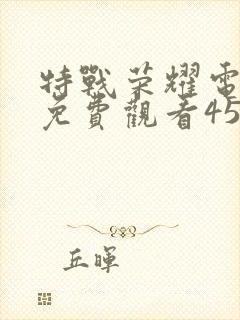 特戰荣耀電
免費觀看45
丘暉